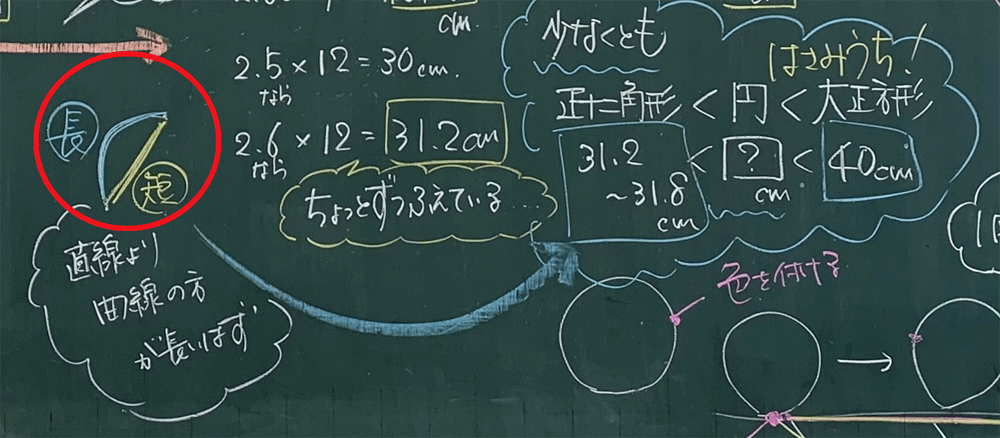 cm
2.5×12=30cm.
なら
2.6×12=31.2cm
なら
ちょっとずつふえている…
長
短
直線より
曲線の方
が長いはず
少なくとも
はさみうち!
正十二角形<円<大正方形
31.2
~31.8
cm
<?<40cm
cm
色を付ける